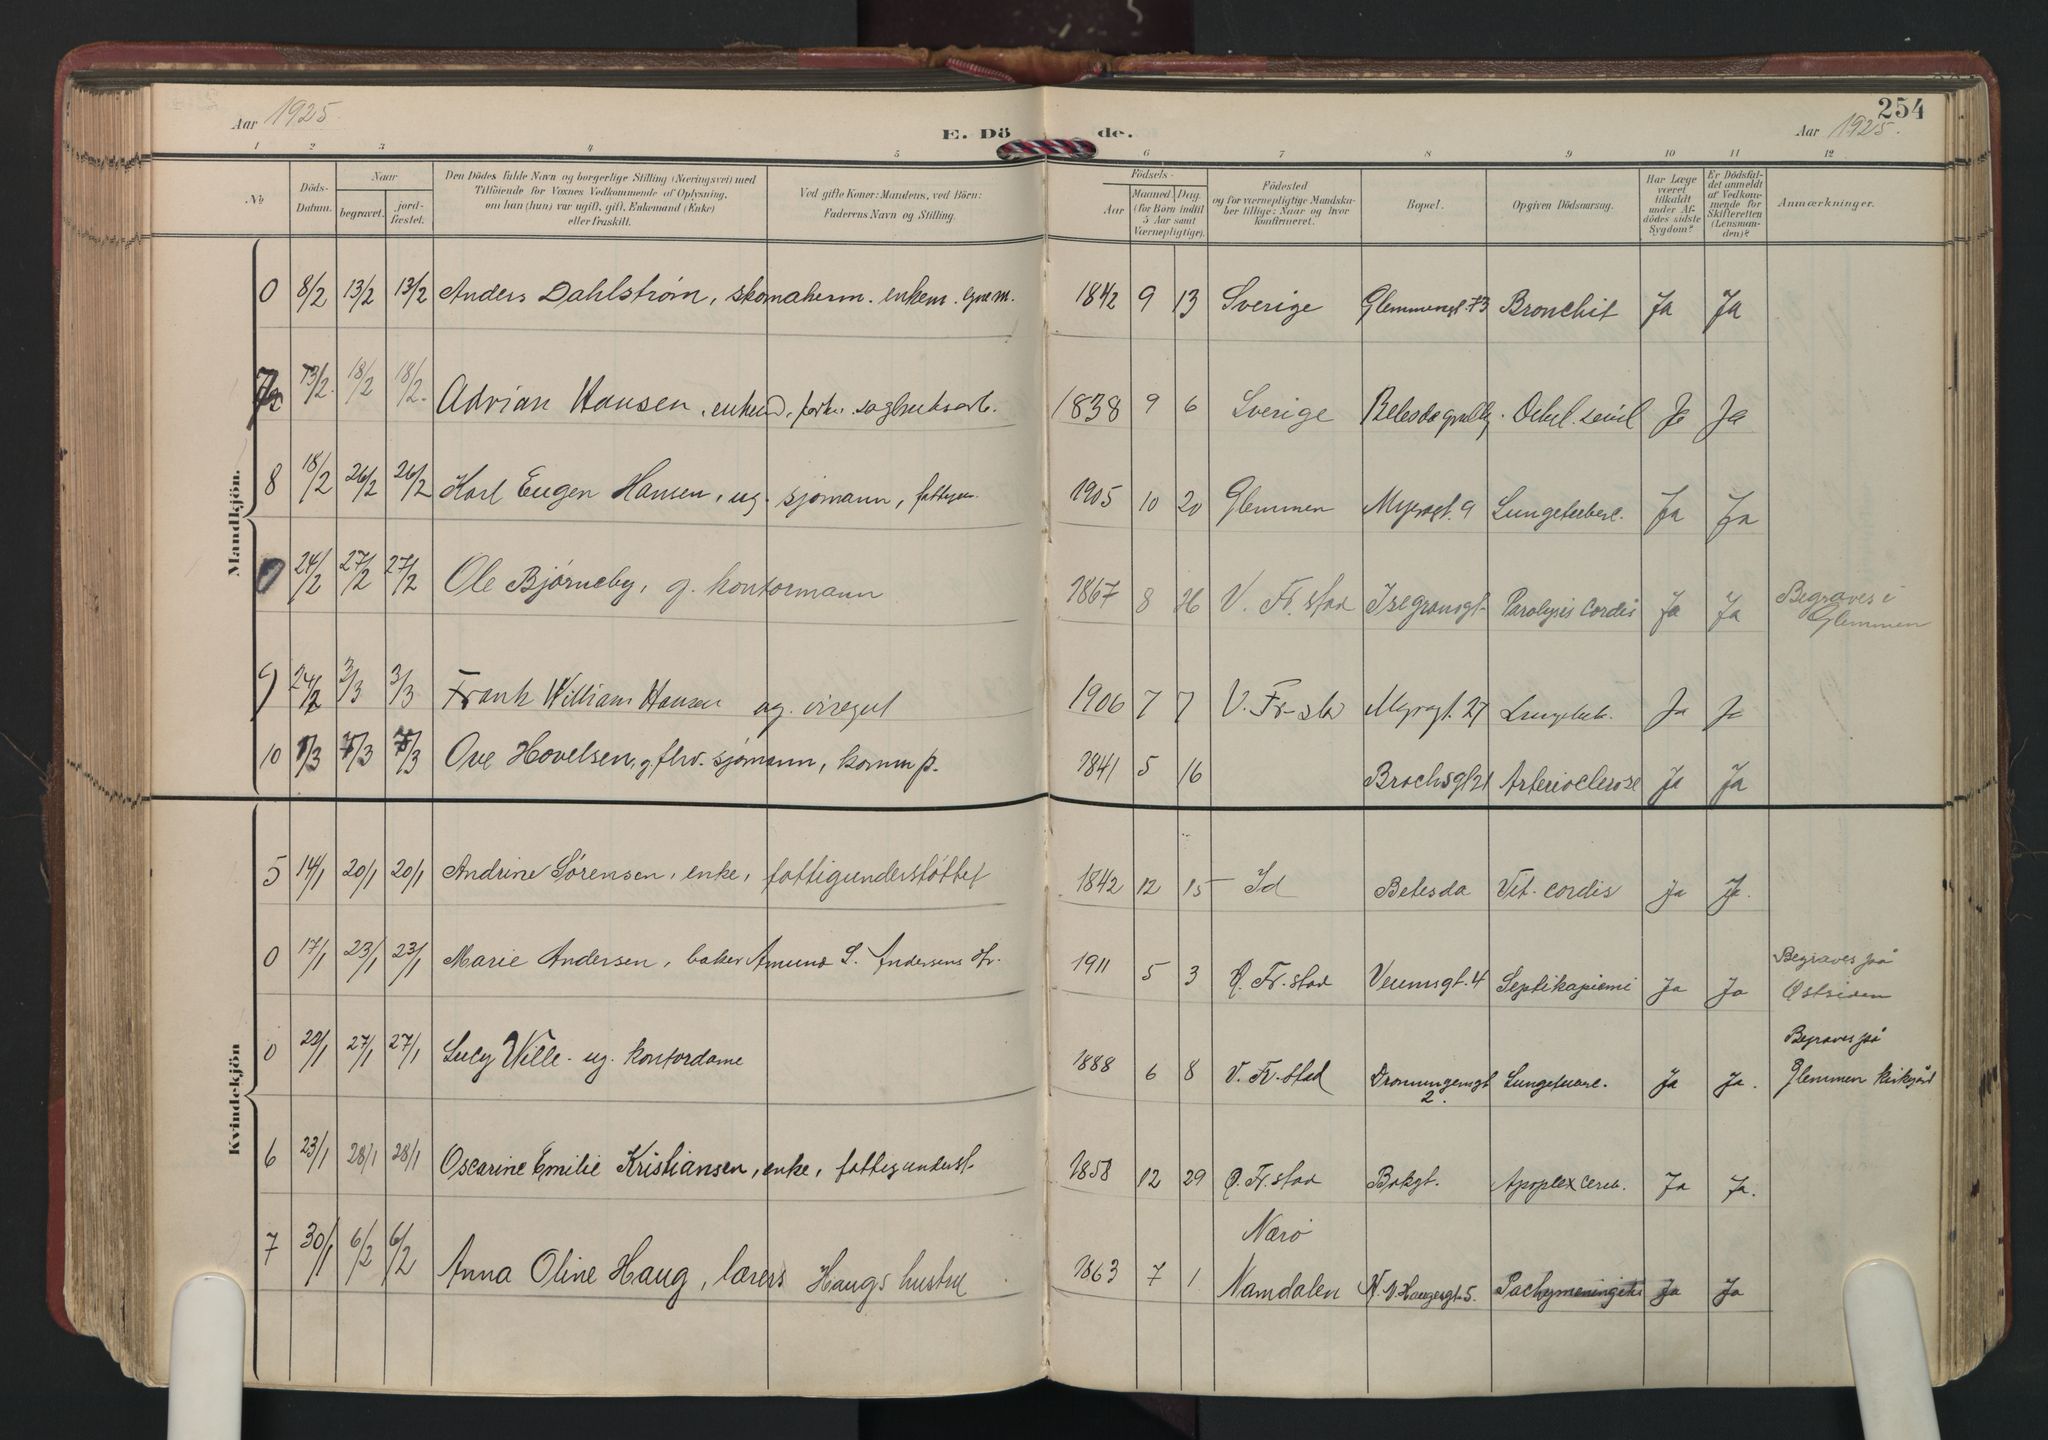 254
Aar 1925.
E. Dö de.
Aar 1925.
1 2 3 4 5 6 7 8 9 10 11 12
№
Döds-Datum.
Naar
begravet.
jord-fæstet.
Den Dödes fulde Navn og borgerlige Stilling (Næringsvei) med
Tilföiende for Voxnes Vedkommende af Oplysning,
om han (hun) var ugift, gift, Enkemand (Enke)
eller fraskilt.
Ved gifte Koner: Mandens, ved Börn:
Faderens Navn og Stilling.
Födsels-
Aar
Maaned Dag
(for Börn indtil
5 Aar samt
Værnepligtige).
Födested
og for værnepligtige Mandskaber tillige: Naar og hvor
konfirmeret.
Bopæl.
Opgiven Dödsaarsag.
Har Læge
været
tilkaldt
under Afdödes sidste
Sygdom?
Er Dödsfaldet anmeldt
af Vedkommende for
Skifteretten
(Lensmanden)?
Anmærkninger.
Mandkjön.
0 8/2 13/2 13/2 Anders Dahlstrøm, skomakerm. enkem. 1842 9 13 Sverige Glemmengt. 73 Bronchit Ja Ja
7 13/2. 18/2 18/2. Adrian Hansen, enkem, sagbruksarb. 1838 9 6 Sverige Debil. senil Ja Ja
8 18/2 26/2 26/2 Karl Eugen Hansen, ug. sjømann, 1905 10 20 Glemmen Myragt. 9 Lungetuberc. Ja Ja
0 24/2 27/2 27/2 Ole Bjørneby, g. kontormann 1867 8 26 V. Fr.stad Isegrangt. Paralysis cordis Ja Ja Begraves i
Glemmen
9 24/2 3/3 3/3 Frank William Hansen ug. visegut 1906 7 7 V. Fr-stad Myragt. 27 Ja Ja
10 /3 7/3 7/3 Ove Hovelsen, g. fhv. sjømann, komm p. 1841 5 16 Brochsgt 21 Ja Ja
Kvindekjön
5 14/1 20/1 20/1 Andrine Sørensen, enke, fattigunderstøttet 1842 12 15 Id Betesda Vit. cordis Ja Ja.
0 17/1 23/1 23/1 Marie Andersen, baker Amund S. Andersens dtr. 1911 5 3 Ø. Fr. stad Veumsgt. 4 Septikopiemi Ja Ja Begraves på
Østsiden
0 22/1 27/1 27/1 Lucy Wille. ug. kontordame 1888 6 8 V. Fr. stad Dronningensgt
2. Lungetuberc. Ja Ja. Begraves på
Glemmen kirkgård
6 23/1 28/1 28/1 Oscarine Emilie Kristiansen, enke, fattigunderst. 1858 12 29 Ø. Fr. stad Bakgt. Apoplex cereb. Ja Ja.
7 30/1 6/2 6/2 Anna Oline Haug, lærers Haugs hustru 1863 7 1 Nærø
Namdalen Haugesgt. 5. Pachymeningitis Ja Ja